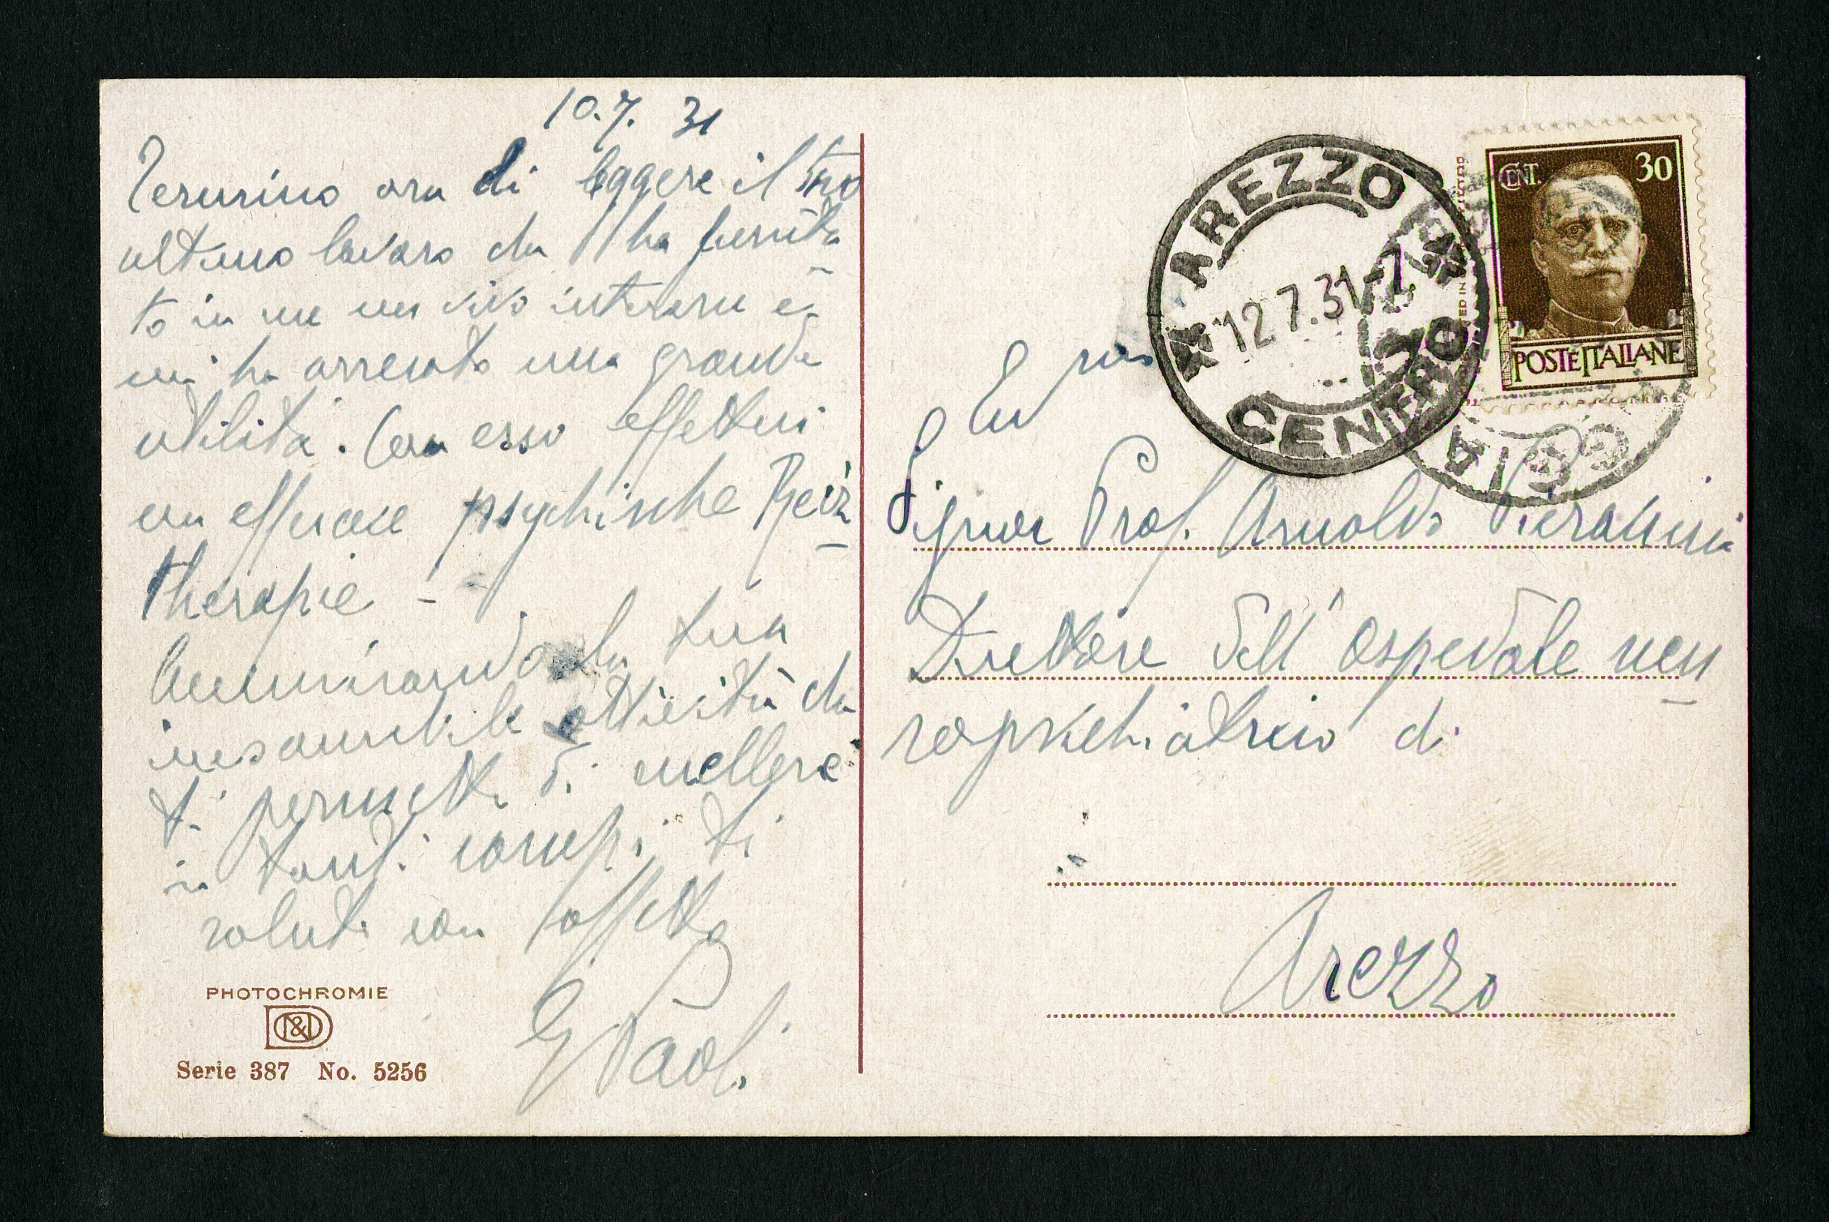 10.7.31
Termino ora di leggere il tuo
ultimo lavoro che ha suscita-
to in me un vivo interesse e
mi ha arrecato una grande
utilità. Con esso effettui
un efficace psychische Reiz
therapie -
Ammirando la tua
inesauribile attività che
ti permette di mellere
in tanti campi ti
saluto con affetto
G Paoli
PHOTOCHROMIE
Serie 387 No. 5256
CENT. 30
POSTE ITALIANE
AREZZO
12.7.31-7
CENTRO
GGIA
Signor Prof. Arnaldo Pieraccini
Direttore dell'Ospedale neu
ropsichiatrico di
Arezzo